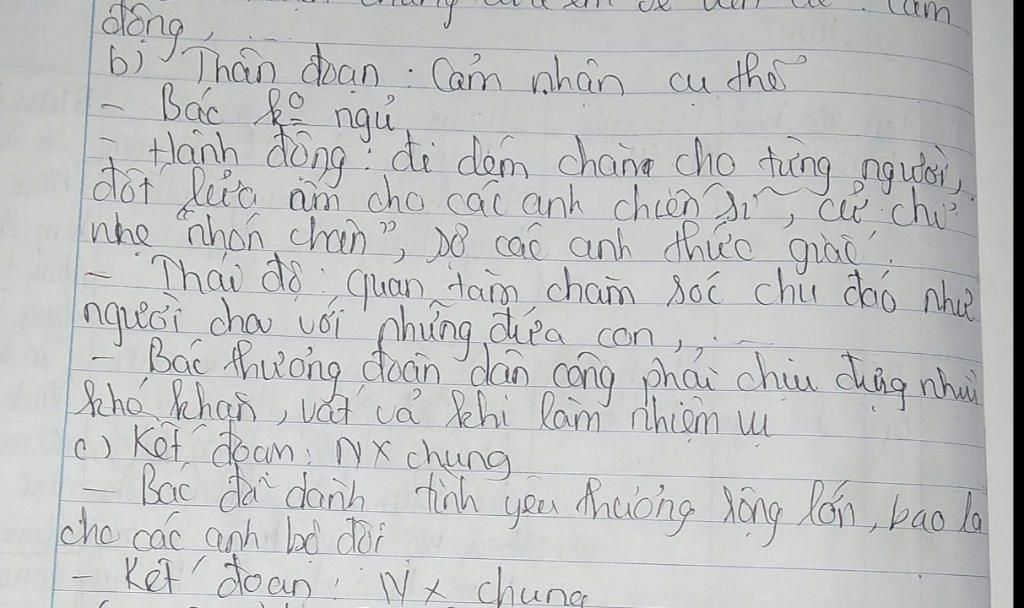 động, ...
b) Thân đoạn: Cảm nhận cụ thể
- Bác k° ngủ
- Hành động: đi dém chăn cho từng người,
đốt lửa ấm cho các anh chiến sĩ, cử chỉ
nhẹ "nhón chân", sợ các anh thức giấc.
- Thái độ: quan tâm chăm sóc chu đáo như
người cha với những đứa con, ...
- Bác thương đoàn dân công phải chịu đựng nhưn
khó khăn, vất vả khi làm nhiệm vụ
c) Kết đoạn: NX chung
- Bác đã dành tình yêu thương rộng lớn, bao la
cho các anh bộ đội
- Kết đoạn: NX chung